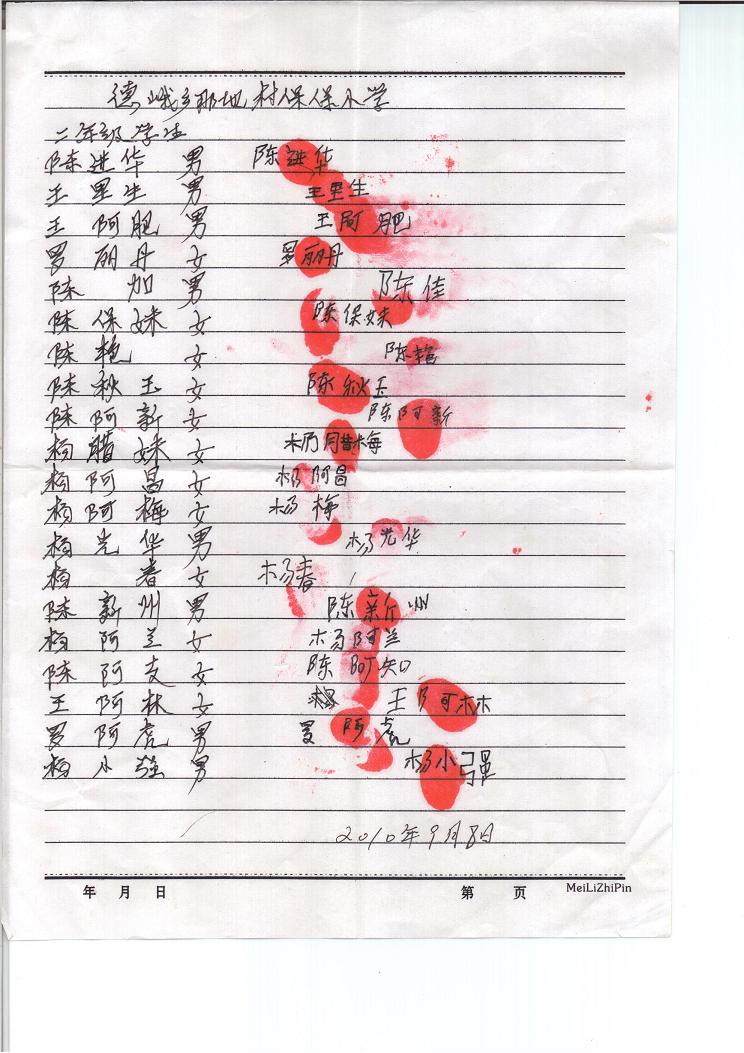 德峨乡那地村保保小学
二年级学生
陈进华 男 陈进华
王里生 男 王里生
王阿肥 男 王阿肥
罗丽丹 女 罗丽丹
陈加 男 陈佳
陈保妹 女 陈保妹
陈艳 女 陈艳
陈秋玉 女 陈秋玉
陈阿新 女 陈阿新
杨腊妹 女 杨腊梅
杨阿昌 女 杨阿昌
杨阿梅 女 杨梅
杨光华 男 杨光华
杨春 女 杨春
陈新州 男 陈新州
杨阿兰 女 杨阿兰
陈阿支 女 陈阿知
王阿林 女 王阿林
罗阿虎 男 罗阿虎
杨小强 男 杨小强
2010年9月8日
年 月 日 第 页 MeiLiZhiPin